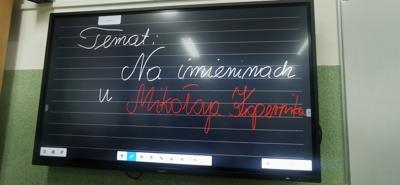 Temat:
Na imieninach
u Mikołaja Kopernika